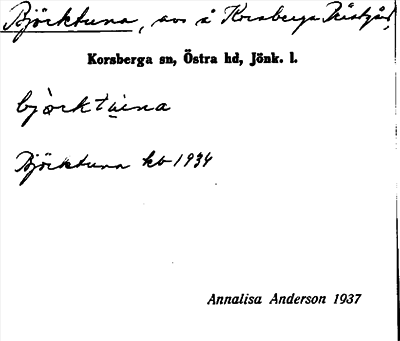 Björktuna, avs å Korsberga Prästgård,
Korsberga sn, Östra hd, Jönk. l.
bjòrktu̠na
Björktuna kb 1934
Annalisa Anderson 1937